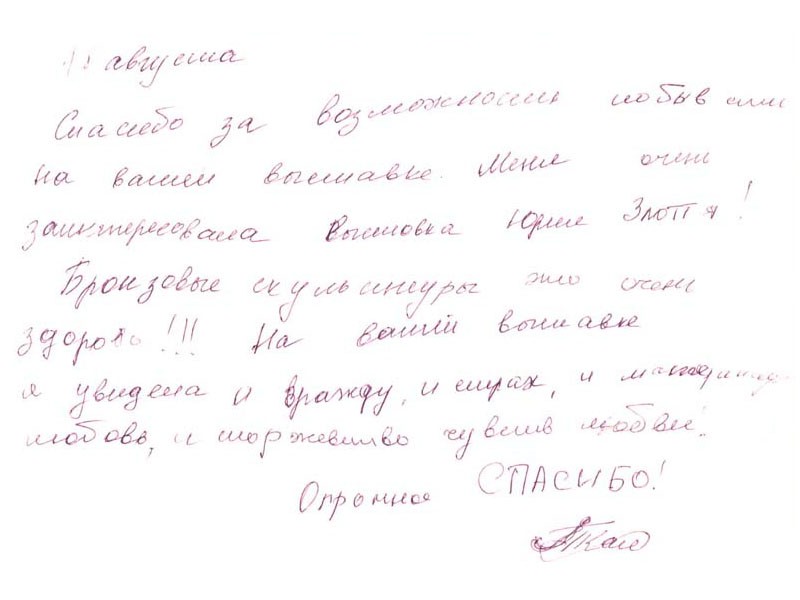 августа
Спасибо за возможность побывать
на вашей выставке. Меня очень
заинтересовала выставка Юрия Злотя!
Бронзовые скульптуры это очень
здорово!!! На вашей выставке
я увидела и вражду, и страх, и материнскую
любовь, и торжество чувств любви!
Огромное СПАСИБО!